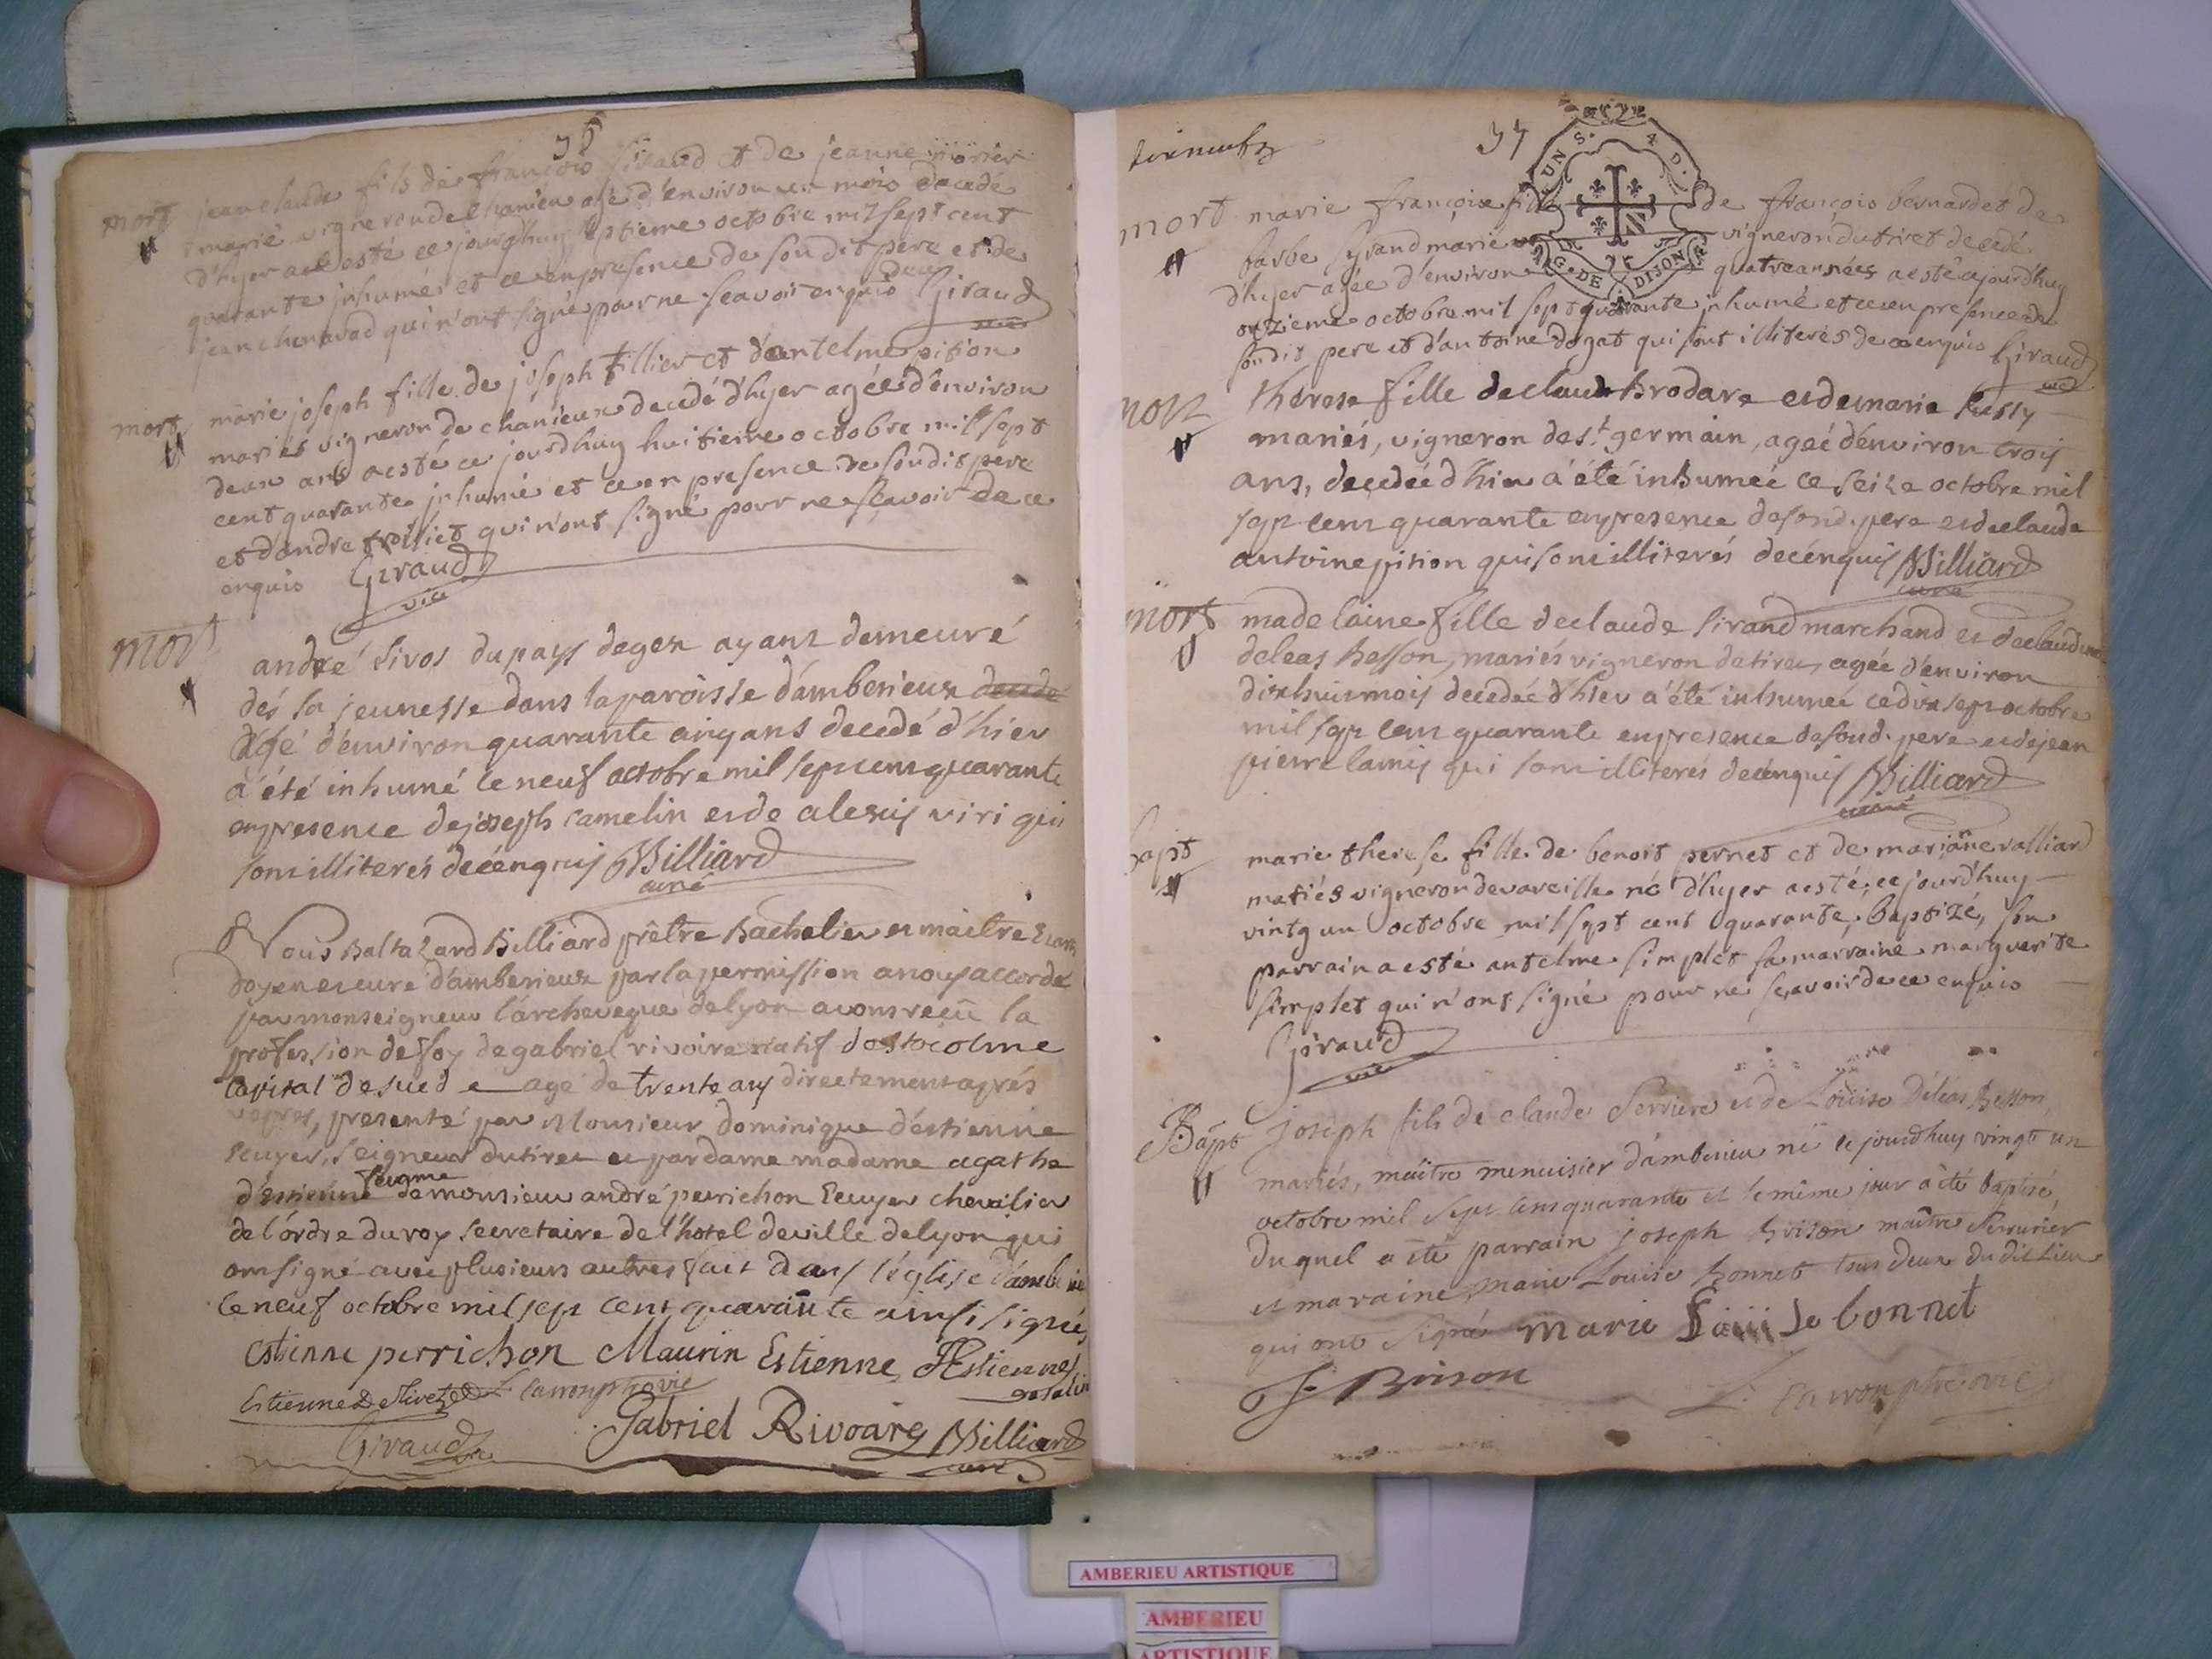 mort jean claude fils de françois Siraud et de jeanne
marié vigneron de chanieu agé d'environ un mois decedé
d'hyer aesté ce jourdhuy septieme octobre mil sept cent
quarante jnhumé et ce en presence de son dit pere et de
jean qui n'ont signé pour ne scavoir de ce enquis Giraud
vic
mort marie joseph fille de joseph tillier et d'antelme pition
mariés vigneron de chanieux decedé d'hyer agée d'environ
deux ans aesté ce jourdhuy huitieme octobre mil sept
cent quarante jnhumé et ce en presence de son dit pere
et d'andre qui n'ont signé pour ne scavoir de ce
enquis Giraud
vic
mort
andré Sivos du pays de gex ayant demeuré
dés sa jeunesse dans la paroisse d'amberieux decedé
agé d'environ quarante cinq ans decedé d'hier
a été inhumé le neuf octobre mil sept cent quarante
en presence de joseph camelin et de alexis viri qui
sont illiterés de ce enquis Billiard
curé
Nous Baltazard Billiard prêtre Bachelier et maitre
doyen et curé d'amberieux par la permission a nous accordé
par monseigneur l'archeveque de lyon avons reçû la
profession de foy de gabriel rivoire natif d'ostocolme
capital de suede agé de trente ans directement aprés
vepres, presenté par Monsieur dominique d'estienne
ecuyer, Seigneur du tiret et par dame madame agathe
d'estienne feugme de monsieur andré perrichon Ecuyer chevalier
de l'ordre du roy secretaire de l'hotel de ville de lyon qui
ont signé avec plusieurs autres fait dans l'église
le neuf octobre mil sept cent quarante ainsi signés
Estienne perrichon Maurin Estienne Estienne
Estienne
Gabriel Rivoare Billiard
Giraud curé
37
mort marie françoise de françois bernardet de
barbe Syrand marie vigneron du tiret decedé
d'hyer agée d'environ quatre années aesté ce jourd'huy
onzieme octobre mil sept quarante jnhumé et ce en presence de
son dit pere et d'antoine dogat qui sont illiterés de ce enquis Giraud
vic
mort thérese fille de claude Brodare et de marie
mariés, vigneron de st germain, ageé d'environ trois
ans, decedée d'hier a été inhumée ce seize octobre mil
sept cent quarante en presence de son d. pere et de claude
antoine pition qui sont illiterés de ce enquis Billiard
curé
mort madelaine fille de claude Sirand marchand et de
deleas besson, mariés vigneron de tiret, agée d'environ
dix huit mois decedée d'hier a été inhumeé ce dix sept octobre
mil sept cent quarante en presence de son d. pere et de jean
pierre lamis qui sont illiterés de ce enquis Billiard
curé
bapt marie therese fille de benoit pernet et de mariane valliard
mariés vigneron de vareille né d'hyer aesté ce jourd'huy
vintg un octobre mil sept cent quarante, baptizé, son
parrain aesté antelme simplet sa marraine marguerite
simplet qui n'ont signé pour ne scavoir de ce enquis
Giraud
vic
Bapt Joseph fils de claude Serriere et de Louise Déléas Besson
mariés, maître menuisier d'amberieu né le jourdhuy vingt un
octobre mil sept cent quarante et le même jour a été baptisé,
duquel a été parrain joseph brison maître Serrurier
et maraine marie Louise bonnet tous deux du dit Lieu
qui ont signé marie bonnet
J. Brison
UNS. 4 D.
G. DE DIJON
AMBERIEU ARTISTIQUE
AMBERIEU
ARTISTIQUE